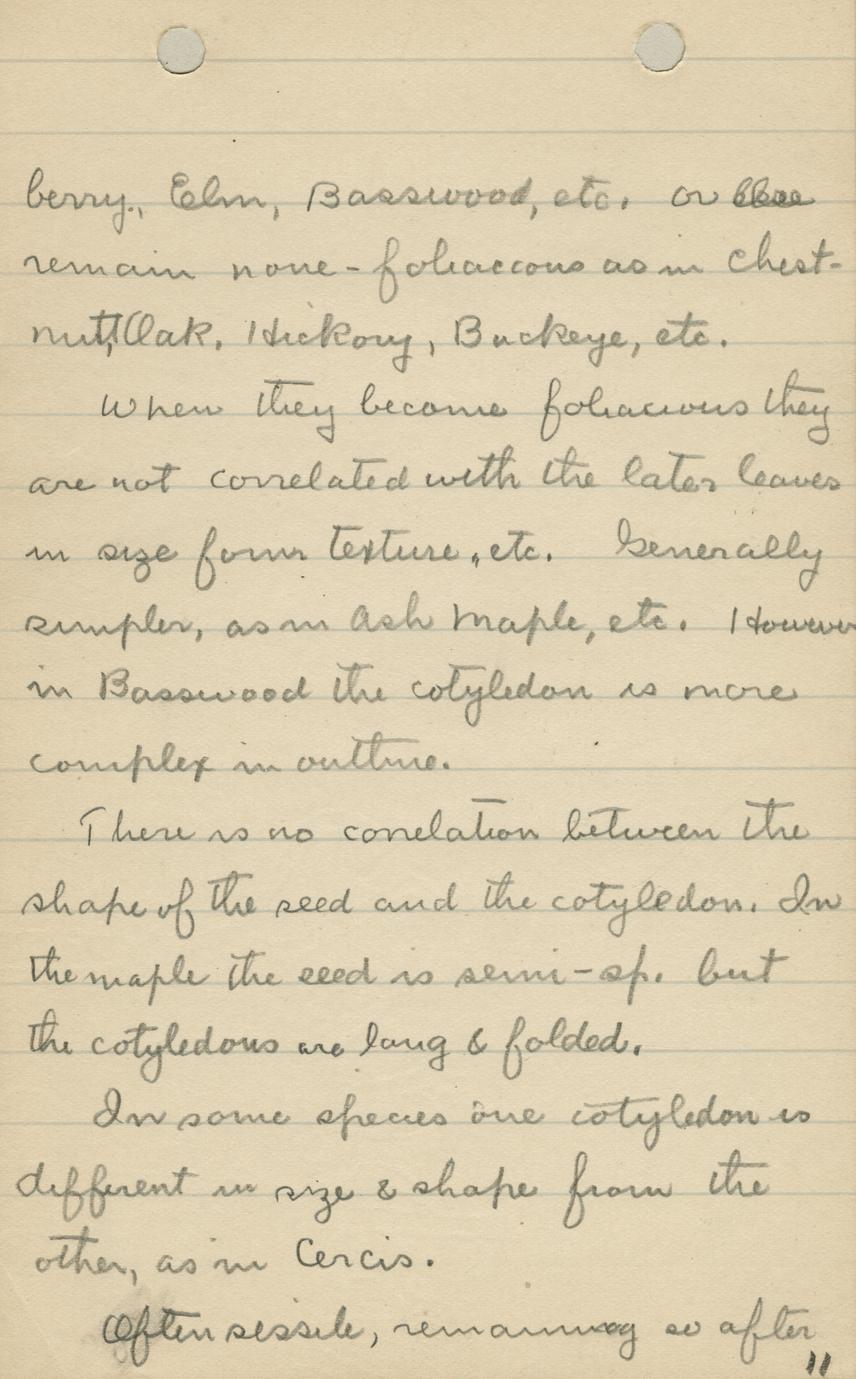 berry., Elm, Basswood, etc. or
remain none-foliaceous as in Chest-
nut, Oak, Hickory, Buckeye, etc.
When they become foliaceous they
are not correlated with the later leaves
in size form texture, etc. Generally
simpler, as in Ash Maple, etc. However
in Basswood the cotyledon is more
complex in outline.
There is no correlation between the
shape of the seed and the cotyledon. In
the maple the seed is semi-sp. but
the cotyledons are long & folded.
In some species one cotyledon is
different in size & shape from the
other, as in Cercis.
Often sessile, remaining so after
11